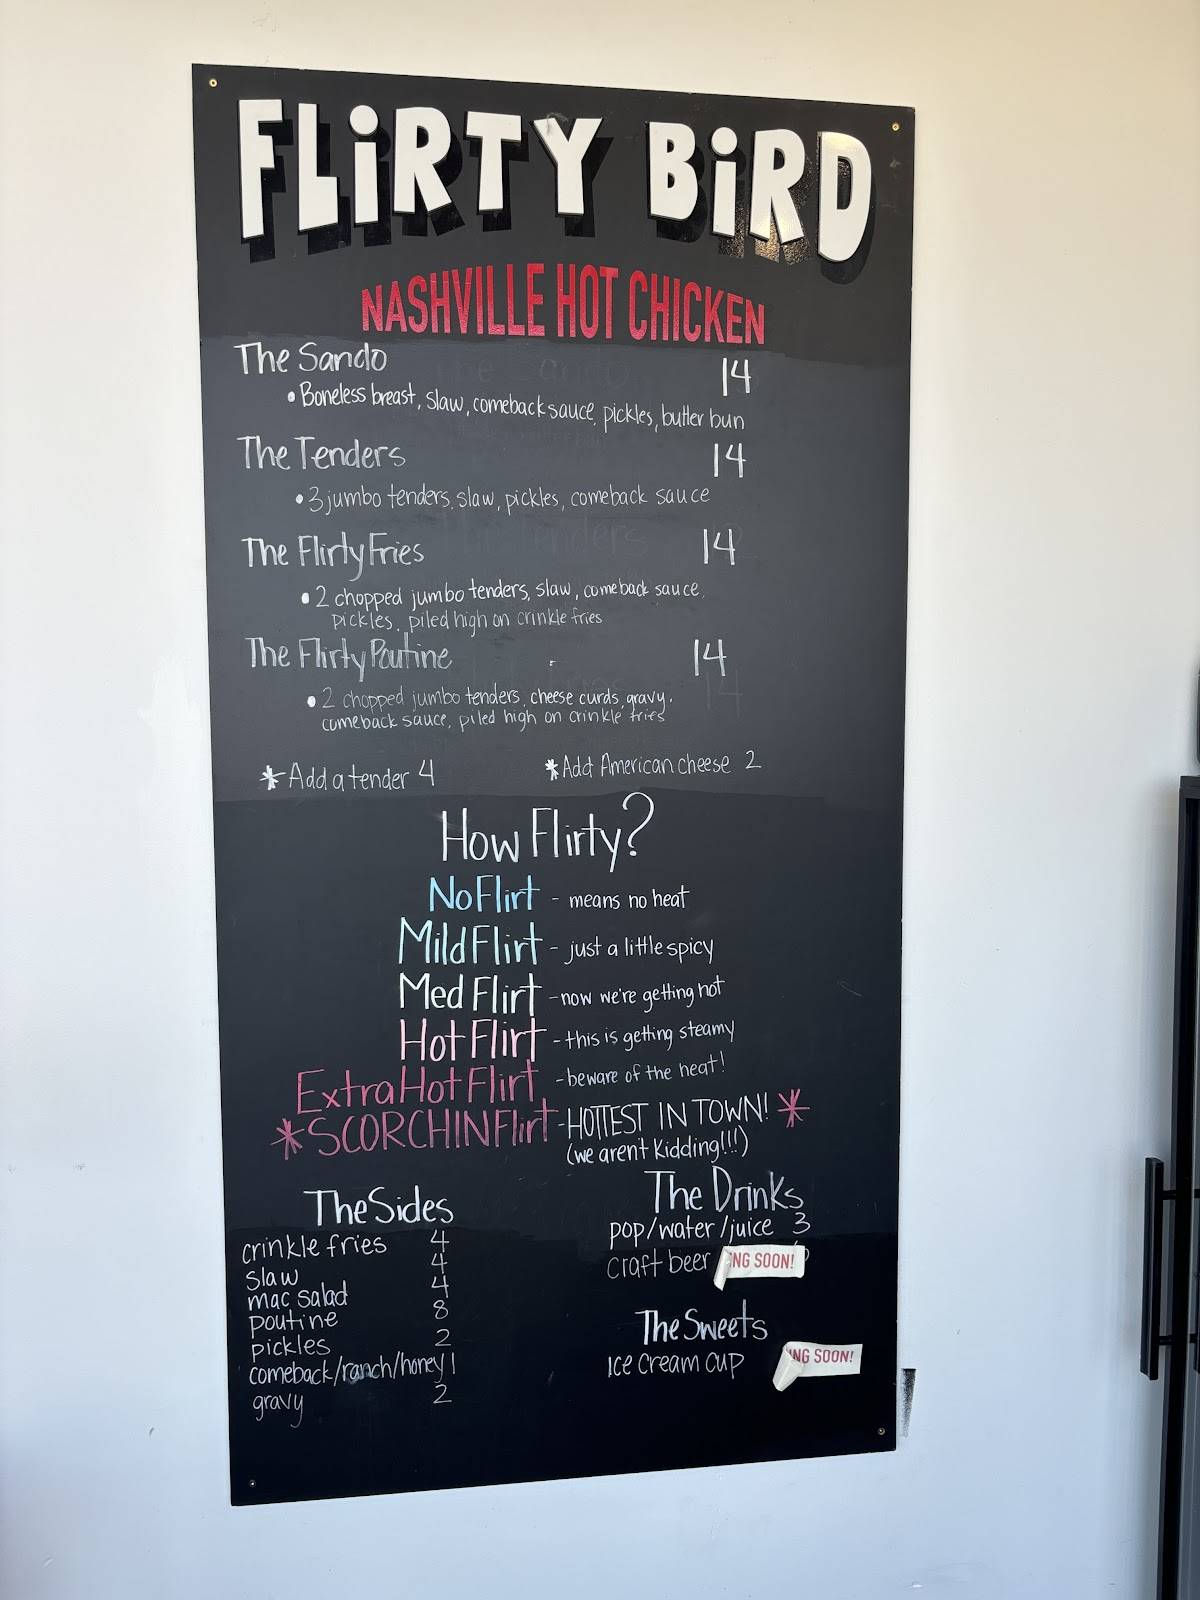 FLiRTY BiRD
NASHVILLE HOT CHICKEN
The Sando 14
• Boneless breast, slaw, comeback sauce, pickles, butter bun
The Tenders 14
• 3 jumbo tenders, slaw, pickles, comeback sauce
The Flirty Fries 14
• 2 chopped jumbo tenders, slaw, comeback sauce,
pickles, piled high on crinkle fries
The Flirty Poutine 14
• 2 chopped jumbo tenders, cheese curds, gravy,
comeback sauce, piled high on crinkle fries
* Add a tender 4 * Add American cheese 2
How Flirty?
No Flirt - means no heat
Mild Flirt - just a little spicy
Med Flirt - now we're getting hot
Hot Flirt - this is getting steamy
Extra Hot Flirt - beware of the heat!
* SCORCHIN Flirt - HOTTEST IN TOWN! *
(we aren't kidding!!!)
The Sides
crinkle fries 4
slaw 4
mac salad 4
poutine 8
pickles 2
comeback/ranch/honey 1
gravy 2
The Drinks
pop/water/juice 3
craft beer NG SOON!
The Sweets
ice cream cup NG SOON!